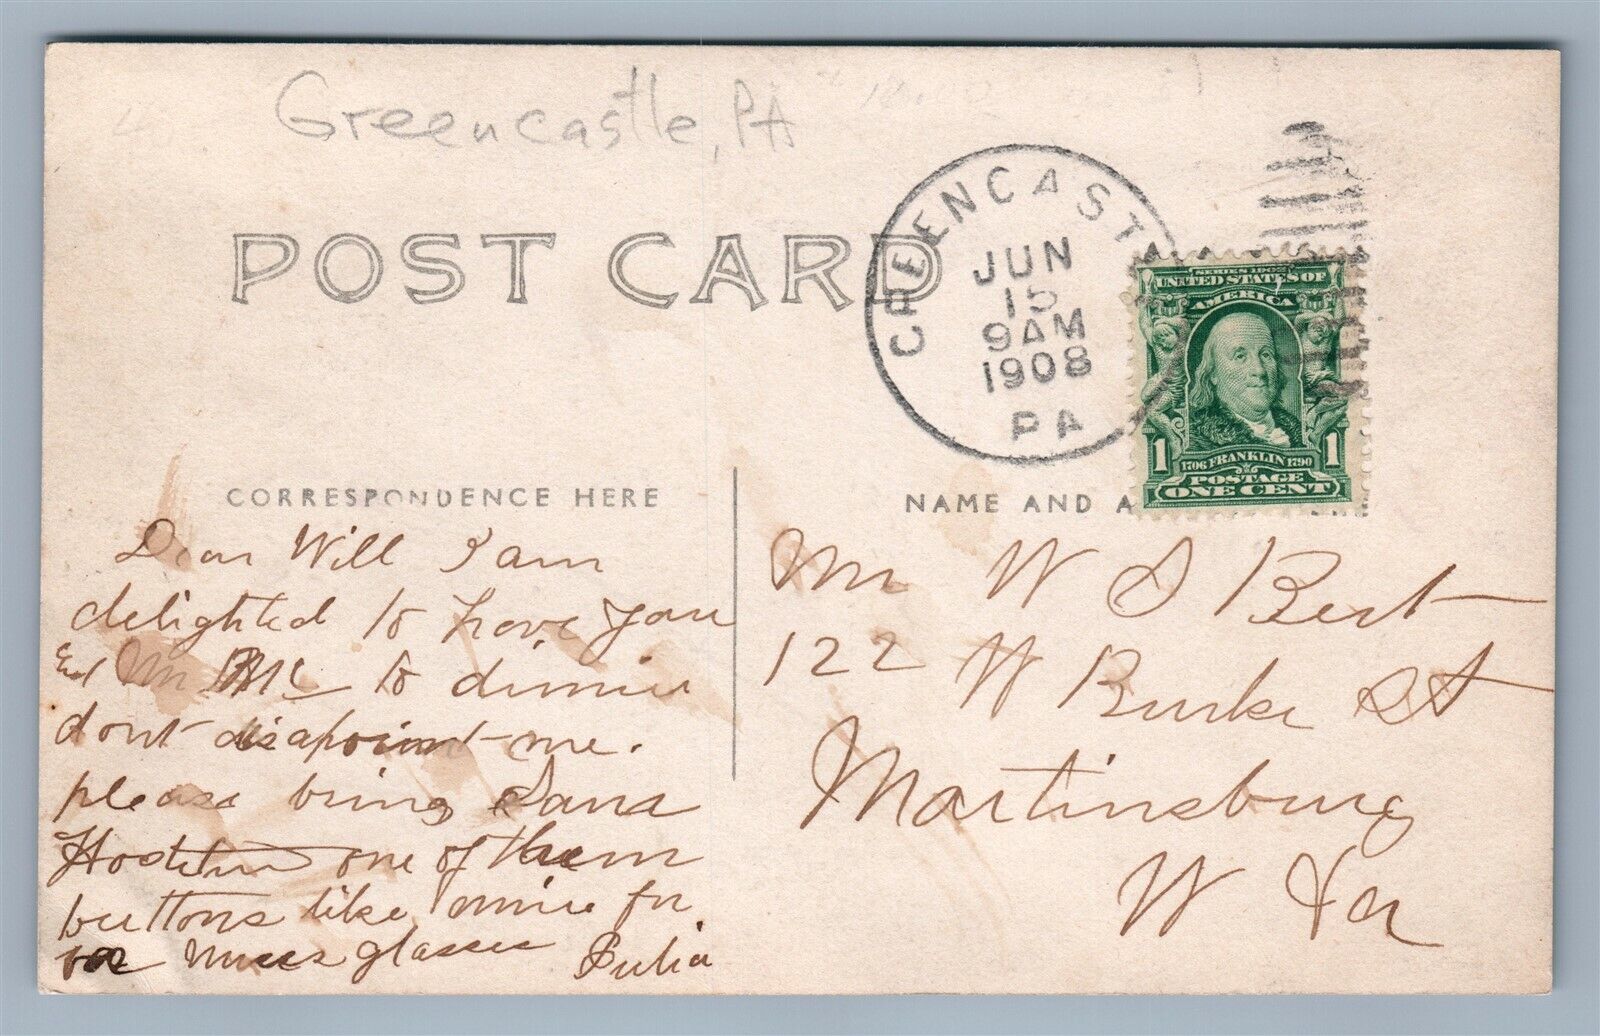 Greencastle, PA
POST CARD
GREENCAST
JUN
15
9AM
1908
PA
SERIES 1902
UNITED STATES OF
AMERICA
1 1706 FRANKLIN 1790 1
POSTAGE
ONE CENT
CORRESPONDENCE HERE
NAME AND A
Dear Will I am
delighted to have you
and Mr to dinner
dont disapoint me.
please bring Sana
one of them
buttons like mine for
glasses Julia
Mr W S Bert
122 W Burke St
Martinsburg
W Va